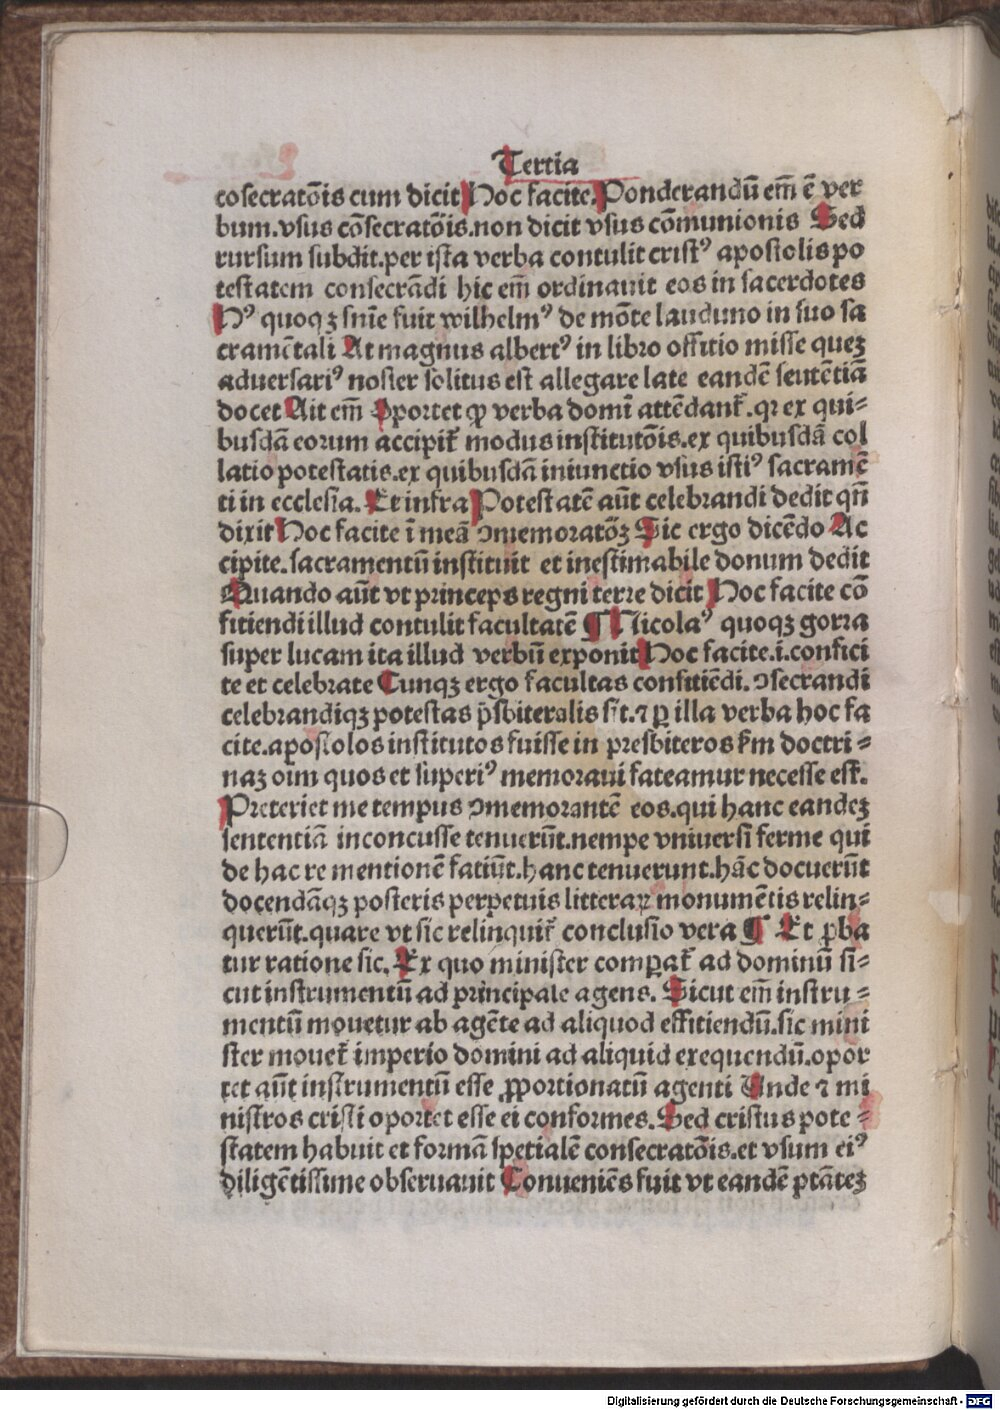 Tertia
cōsecratōis cum dicit Hoc facite. Ponderandū em̄ ē ver
bum. vsus cōsecratōis. non dicit vsus cōmunionis Sed
rursum subdit. per ista verba contulit cristꝰ apostolis po
testatem consecrādi hic em̄ ordinauit eos in sacerdotes
Hꝰ quoqꝫ snīe fuit wilhelmꝰ de mōte lauduno in suo sa
cramētali At magnus albertꝰ in libro offitio misse queꝫ
aduersariꝰ noster solitus est allegare late eandē sentētiā
docet Ait em̄ Oportet ꝙ verba domī attēdant᷑. qꝛ ex qui⸗
busdā eorum accipit᷑ modus institutōis. ex quibusdā col
latio potestatis. ex quibusdā iniunctio vsus istiꝰ sacramē
ti in ecclesia. Et infra Potestatē aūt celebrandi dedit qn̄
dixit Hoc facite ī meā ↄmemoratōꝫ Sic ergo dicēdo Ac
cipite. sacramentū instituit et inestimabile donum dedit
Quando aūt vt princeps regni terre dicit Hoc facite cō
fitiendi illud contulit facultatē ¶ Nicolaꝰ quoqꝫ gorra
super lucam ita illud verbū exponit Hoc facite. i. confici
te et celebrate Cunqꝫ ergo facultas confitiēdi. ↄsecrandi
celebrandiqꝫ potestas p̄sbiteralis sit. ⁊ ꝑ illa verba hoc fa
cite. apostolos institutos fuisse in presbiteros ẜm doctri⸗
naꝫ oim quos et superiꝰ memoraui fateamur necesse est.
Preteriet me tempus ↄmemorantē eos. qui hanc eandeꝫ
sententiā inconcusse tenuerūt. nempe vniuersi ferme qui
de hac re mentionē fatiūt. hanc tenuerunt. hāc docuerūt
docendāqꝫ posteris perpetuis litteraꝝ monumētis relin⸗
querūt. quare vt sic relinquit᷑ conclusio vera ¶ Et ꝓba
tur ratione sic. Ex quo minister compaꝝat᷑ ad dominū si⸗
cut instrumentū ad principale agens. Sicut em̄ instru⸗
mentū mouetur ab agēte ad aliquod effitiendū. sic mini
ster mouet᷑ imperio domini ad aliquid exequendū. opor
tet aūt instrumentū esse ꝓportionatū agenti Unde ⁊ mi
nistros cristi oportet esse ei conformes. Sed cristus pote⸗
statem habuit et formā spetialē consecratōis. et vsum eiꝰ
diligētissime obseruauit Conueniēs fuit vt eandē ptāteꝫ
Digitalisierung gefördert durch die Deutsche Forschungsgemeinschaft - DFG